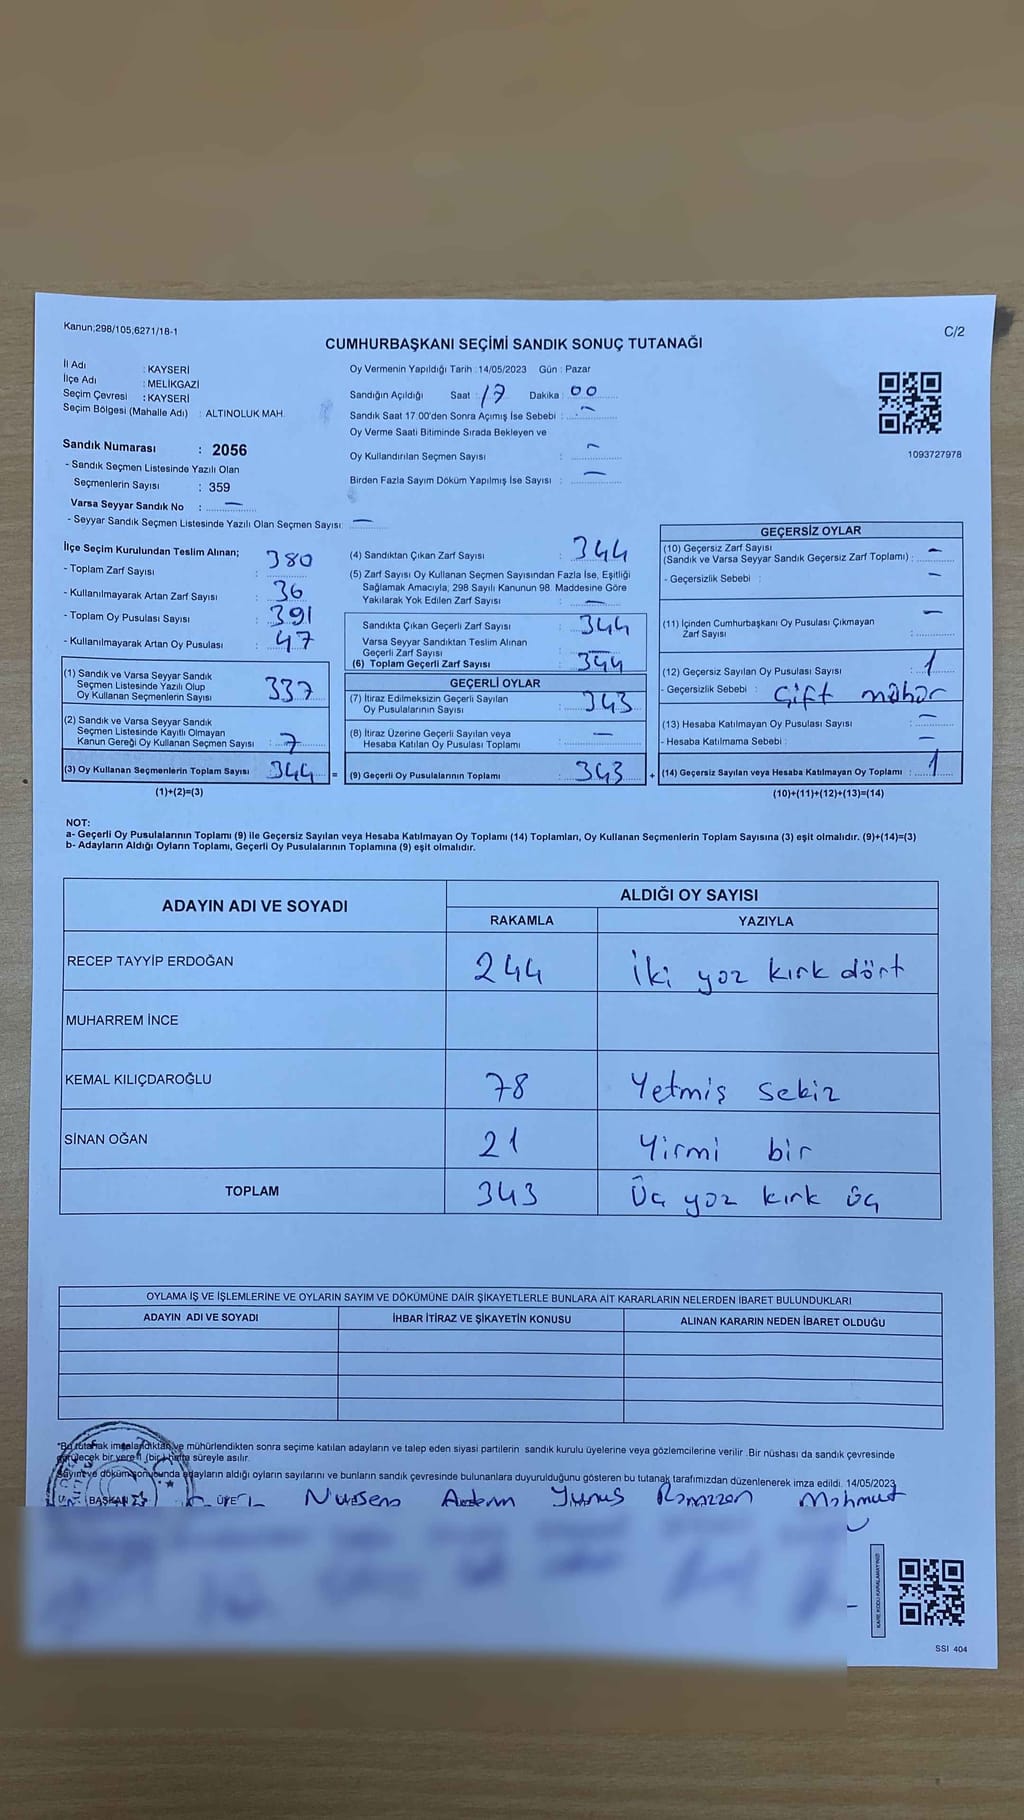 Kanun;298/105,6271/18-1
C/2
CUMHURBAŞKANI SEÇİMİ SANDIK SONUÇ TUTANAĞI
İl Adı : KAYSERİ
İlçe Adı : MELİKGAZİ
Seçim Çevresi : KAYSERİ
Seçim Bölgesi (Mahalle Adı) : ALTINOLUK MAH.
Sandık Numarası : 2056
- Sandık Seçmen Listesinde Yazılı Olan
Seçmenlerin Sayısı : 359
Varsa Seyyar Sandık No : —
- Seyyar Sandık Seçmen Listesinde Yazılı Olan Seçmen Sayısı: —
Oy Vermenin Yapıldığı Tarih : 14/05/2023 Gün : Pazar
Sandığın Açıldığı Saat : 17 Dakika : 00
Sandık Saat 17.00'den Sonra Açımış İse Sebebi : —
Oy Verme Saati Bitiminde Sırada Bekleyen ve
Oy Kullandırılan Seçmen Sayısı : —
Birden Fazla Sayım Döküm Yapılmış İse Sayısı : —
1093727978
İlçe Seçim Kurulundan Teslim Alınan;
- Toplam Zarf Sayısı : 380
- Kullanılmayarak Artan Zarf Sayısı : 36
- Toplam Oy Pusulası Sayısı : 391
- Kullanılmayarak Artan Oy Pusulası : 47
(1) Sandık ve Varsa Seyyar Sandık
Seçmen Listesinde Yazılı Olup
Oy Kullanan Seçmenlerin Sayısı 337
(2) Sandık ve Varsa Seyyar Sandık
Seçmen Listesinde Kayıtlı Olmayan
Kanun Gereği Oy Kullanan Seçmen Sayısı : 7
(3) Oy Kullanan Seçmenlerin Toplam Sayısı 344 =
(1)+(2)=(3)
(4) Sandıktan Çıkan Zarf Sayısı : 344
(5) Zarf Sayısı Oy Kullanan Seçmen Sayısından Fazla İse, Eşitliği
Sağlamak Amacıyla, 298 Sayılı Kanunun 98. Maddesine Göre
Yakılarak Yok Edilen Zarf Sayısı : —
Sandıkta Çıkan Geçerli Zarf Sayısı : 344
Varsa Seyyar Sandıktan Teslim Alınan
Geçerli Zarf Sayısı : —
(6) Toplam Geçerli Zarf Sayısı : 344
GEÇERLİ OYLAR
(7) İtiraz Edilmeksizin Geçerli Sayılan
Oy Pusulalarının Sayısı : 343
(8) İtiraz Üzerine Geçerli Sayılan veya
Hesaba Katılan Oy Pusulası Toplamı : —
(9) Geçerli Oy Pusulalarının Toplamı : 343 +
GEÇERSİZ OYLAR
(10) Geçersiz Zarf Sayısı
(Sandık ve Varsa Seyyar Sandık Geçersiz Zarf Toplamı) : —
- Geçersizlik Sebebi : —
(11) İçinden Cumhurbaşkanı Oy Pusulası Çıkmayan
Zarf Sayısı : —
(12) Geçersiz Sayılan Oy Pusulası Sayısı : 1
- Geçersizlik Sebebi : Çift mühür
(13) Hesaba Katılmayan Oy Pusulası Sayısı : —
- Hesaba Katılmama Sebebi : —
(14) Geçersiz Sayılan veya Hesaba Katılmayan Oy Toplamı : 1
(10)+(11)+(12)+(13)=(14)
NOT:
a- Geçerli Oy Pusulalarının Toplamı (9) ile Geçersiz Sayılan veya Hesaba Katılmayan Oy Toplamı (14) Toplamları, Oy Kullanan Seçmenlerin Toplam Sayısına (3) eşit olmalıdır. (9)+(14)=(3)
b- Adayların Aldığı Oyların Toplamı, Geçerli Oy Pusulalarının Toplamına (9) eşit olmalıdır.
ADAYIN ADI VE SOYADI ALDIĞI OY SAYISI
RAKAMLA YAZIYLA
RECEP TAYYİP ERDOĞAN 244 İki yüz kırk dört
MUHARREM İNCE
KEMAL KILIÇDAROĞLU 78 Yetmiş sekiz
SİNAN OĞAN 21 Yirmi bir
TOPLAM 343 Üç yüz kırk üç
OYLAMA İŞ VE İŞLEMLERİNE VE OYLARIN SAYIM VE DÖKÜMÜNE DAİR ŞİKAYETLERLE BUNLARA AİT KARARLARIN NELERDEN İBARET BULUNDUKLARI
ADAYIN ADI VE SOYADI İHBAR İTİRAZ VE ŞİKAYETİN KONUSU ALINAN KARARIN NEDEN İBARET OLDUĞU
*Bu tutanak imzalandıktan ve mühürlendikten sonra seçime katılan adayların ve talep eden siyasi partilerin sandık kurulu üyelerine veya gözlemcilerine verilir .Bir nüshası da sandık çevresinde
görülecek bir yere (bir) hafta süreyle asılır.
Sayım ve döküm sonucunda adayların aldığı oyların sayılarını ve bunların sandık çevresinde bulunanlara duyurulduğunu gösteren bu tutanak tarafımızdan düzenlenerek imza edildi. 14/05/2023
BAŞKAN ÜYE Nursena Yunus Ramazan Mahmut
KARE KODU KARALAMAYINIZ!
SSI 404